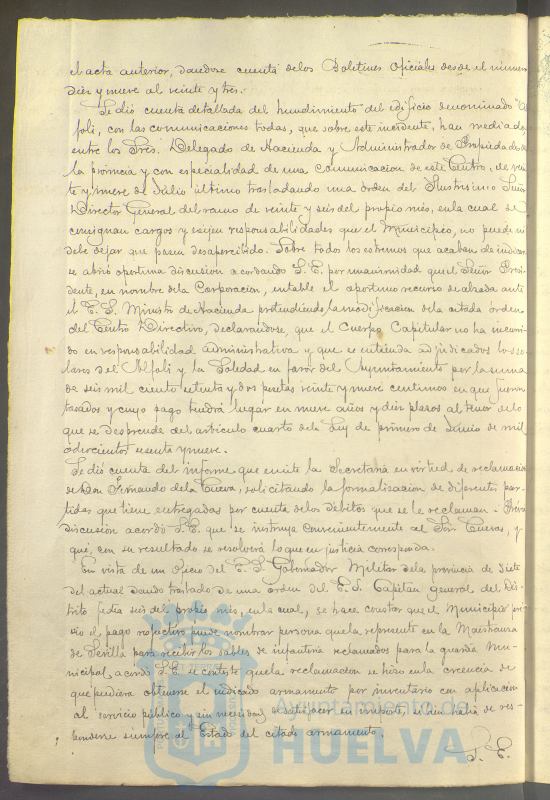 el acta anterior, dandose cuenta delos Boletines Oficiales desde el numero
diez y nueve al veinte y tres.
Se dió cuenta detallada del hundimiento del edificio denominado
foli, con las comunicaciones todas, que sobre este incidente, han mediado
entre los Sres. Delegado de Hacienda y Administrador de Propiedades de
la provincia y con especialidad de una comunicacion de este Centro, de vein
te y nueve de Julio último trasladando una órden del Ilustrisimo Señor
Director General del ramo de veinte y seis del propio mes, en la cual se
consignan cargos y exijen responsabilidades que el Municipio, no puede ni
debe dejar que pasen desapercibido. Sobre todos los estremos que acaban de indicarse
se abrió oportuna discusion acordando S. E. por unanimidad que el Señor Presi
dente, en nombre dela Corporacion, entable el oportuno recurso de alzada ante
el E. S. Ministro de Hacienda pretendiendo la modificacion dela citada órden
del Centro Directivo, declarandose, que el Cuerpo Capitular no ha incurri
do en responsabilidad administrativa y que se entienda adjudicados los so
lares del Alfoli y la Soledad en favor del Ayuntamiento por la suma
de seis mil ciento setenta y dos pesetas veinte y nueve centimos en que fueron
tasados y cuyo pago tendrá lugar en nueve años y diez plazos al tenor delo
que se desprende del articulo cuarto dela Ley de primero de Junio de mil
ochocientos sesenta y nueve.
Se dió cuenta del informe que emite la Secretaria en virtud de reclamacion
de Don Fernando dela Cueva, solicitando la formalizacion de diferentes par
tidas que tiene entregadas por cuenta delos debitos que se le reclaman. Previa
discusion acordó S. E. que se instruya convenientemente al Sor. Cuevas, y
qué, con su resultado se resolverá lo que en justicia corresponda.
En vista de un oficio del E. S. Gobernador Militar dela provincia de siete
del actual dando traslado de una orden del E. S. Capitan General del Dis
trito fecha seis del propio mes, en la cual, se hace constar que el Municipio pré
vio el pago respectivo puede nombrar persona que la represente en la Maestranza
de Sevilla para recibir los sables de infanteria reclamados para la guardia Mu
nicipal acordó S. E. se conteste que la reclamacion se hizo en la creencia de
que pudiera obtenerse el indicado armamento por inventario con aplicacion
al servicio público y sin necesidad de satisfacer su importe, si bien habia de res
ponderse siempre al Estado del citado armamento.
S. E.
Ayuntamiento de
HUELVA